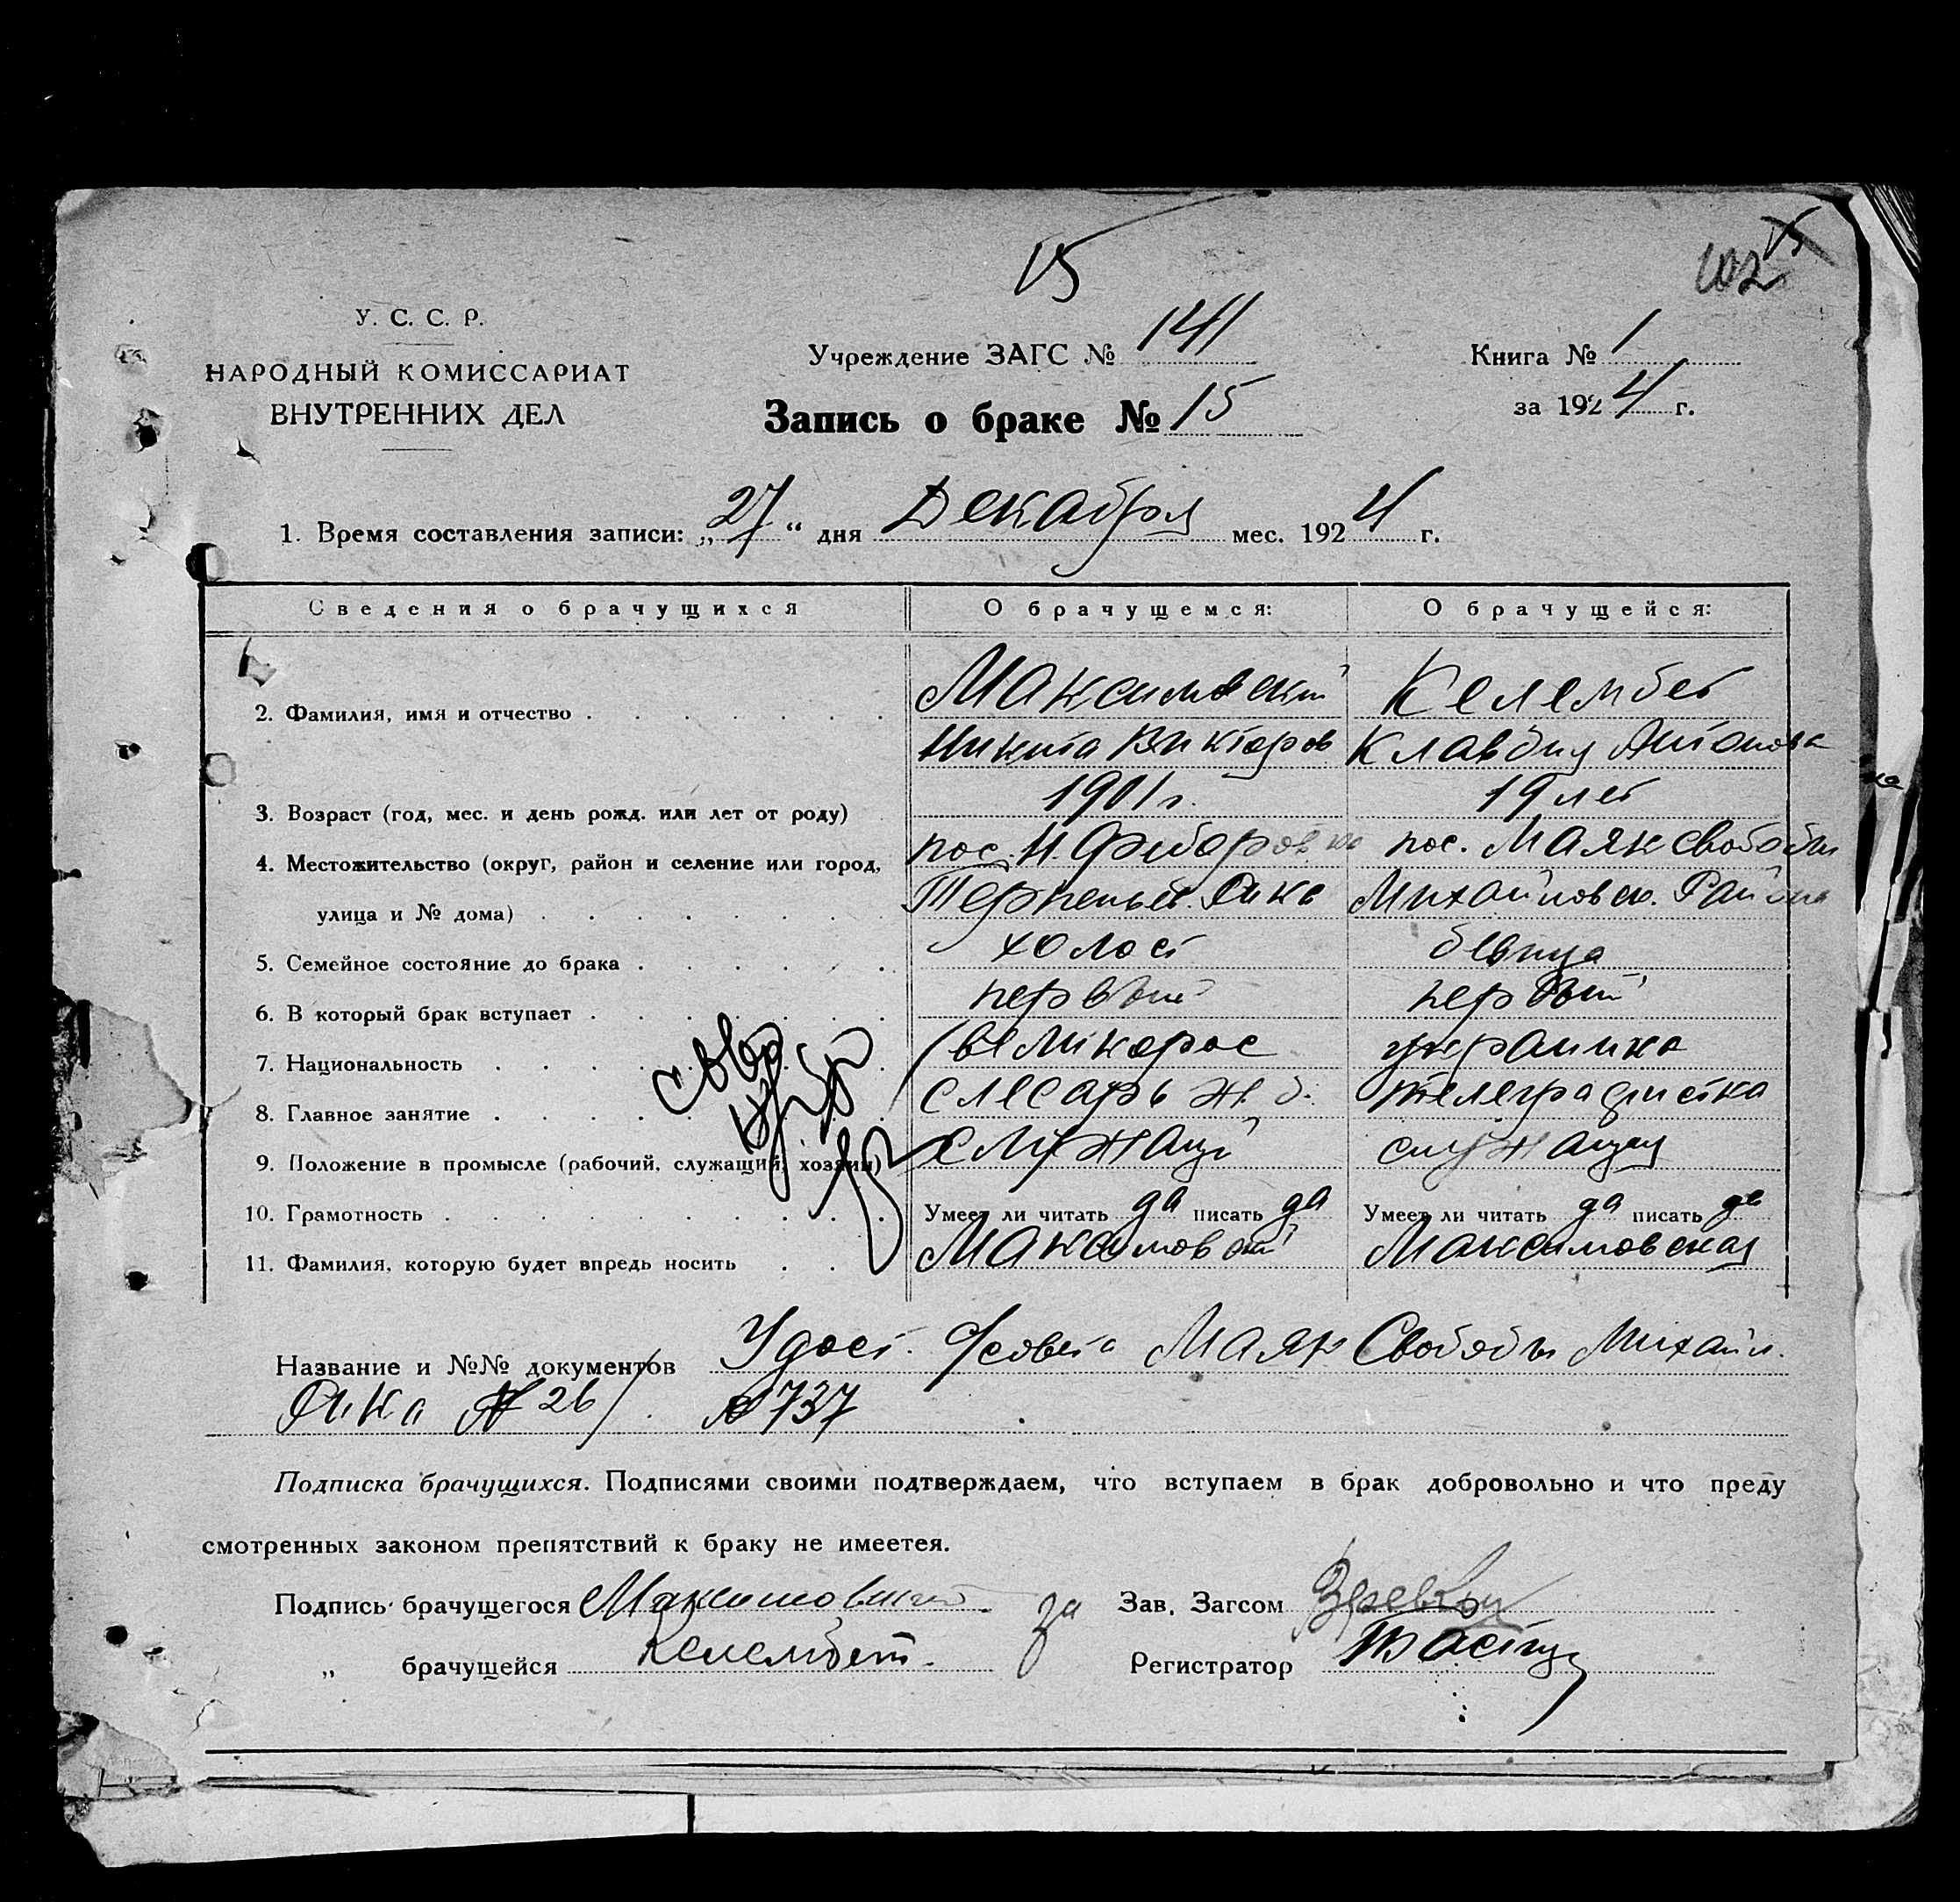 15
15
102
У. С. С. Р.
НАРОДНЫЙ КОМИССАРИАТ
ВНУТРЕННИХ ДЕЛ
Учреждение ЗАГС № 141
Книга № 1
Запись о браке № 15
за 1924 г.
1. Время составления записи: „27“ дня Декабря мес. 1924 г.
Сведения о брачущихся О брачущемся: О брачущейся:
2. Фамилия, имя и отчество Максимовский Келембет
Никита Викторов Клавдия Антонова
3. Возраст (год, мес. и день рожд. или лет от роду) 1901 г. 19 лет
4. Местожительство (округ, район и селение или город, пос. Н. Фидоровка пос. Маяк Свободы
улица и № дома) Терпеньев. Михайловск. Района
5. Семейное состояние до брака холост девица
6. В который брак вступает первый первый
7. Национальность великорос украинка
8. Главное занятие слесарь ж. д. телеграфистка
9. Положение в промысле (рабочий, служащий, хозяин) служащй служащая
10. Грамотность Умеет ли читать да писать да Умеет ли читать да писать да
11. Фамилия, которую будет впредь носить Максимовский Максимовская
Название и №№ документов Удост. С/совета Маяк Свободы Михайл.
№ 26/ № 737
Подписка брачущихся. Подписями своими подтверждаем, что вступаем в брак добровольно и что преду
смотренных законом препятствий к браку не имеетея.
Подпись брачущегося Максимовский за Зав. Загсом
„ брачущейся Келембет. Регистратор